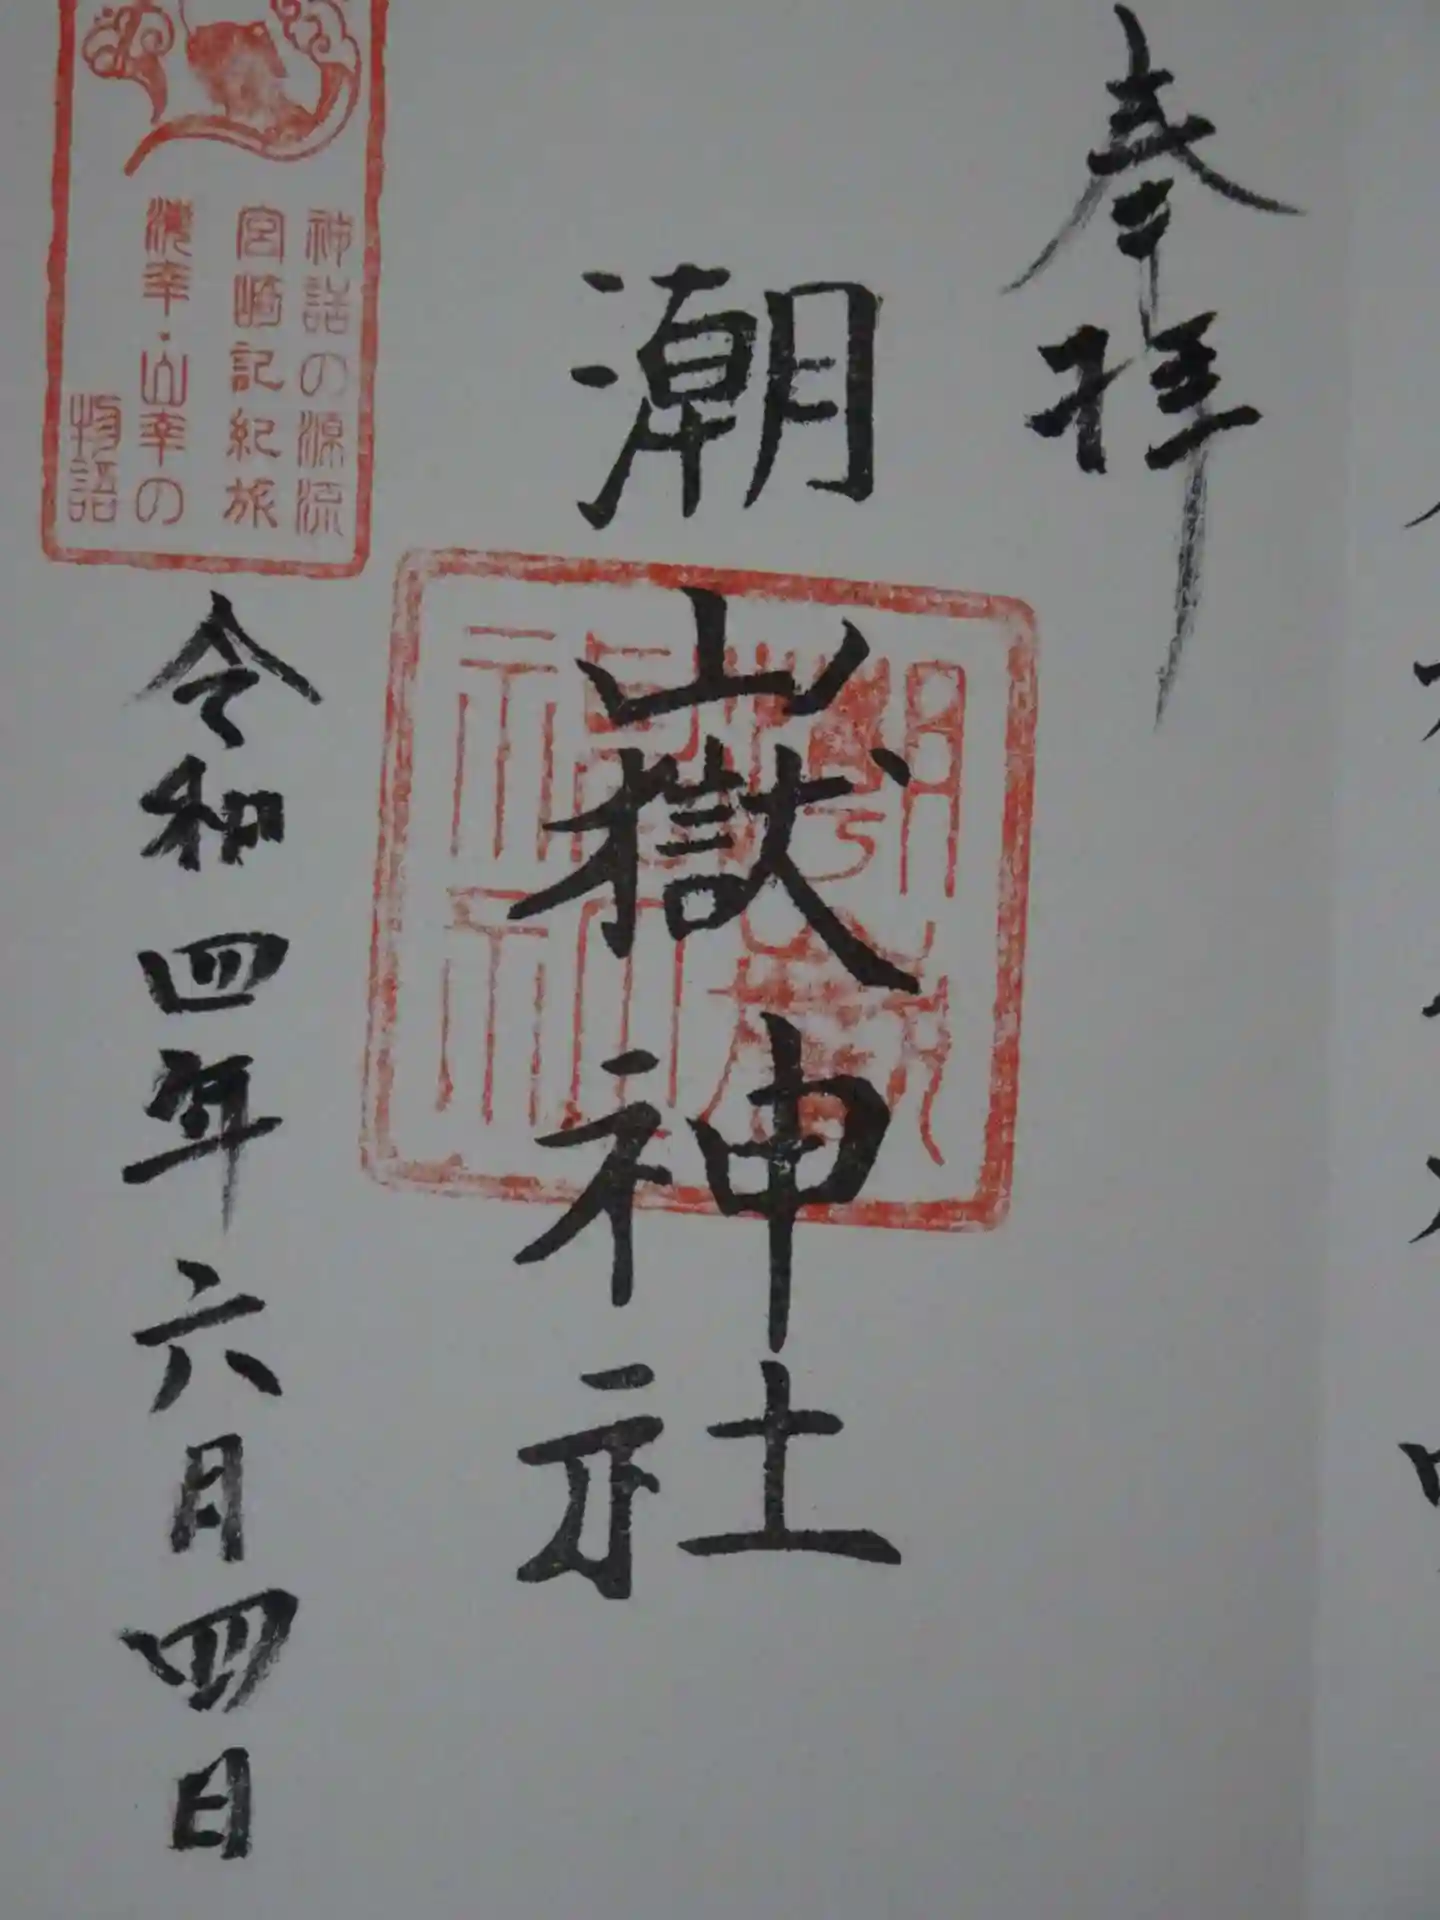 奉拝
潮嶽神社
神話の源流
宮崎記紀旅
海幸・山幸の
物語
令和四年六月四日